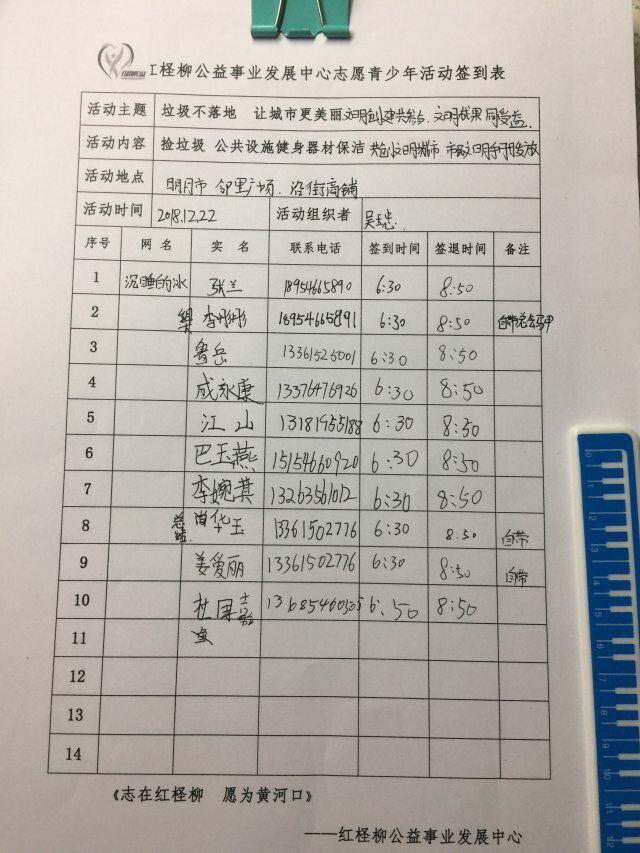 红柽柳公益事业发展中心志愿青少年活动签到表
活动主题 垃圾不落地 让城市更美丽 文明创建共参与,文明成果同受益.
活动内容 捡垃圾 公共设施健身器材保洁
活动地点 明月市 邻里广场、沿街商铺
活动时间 2018.12.22 活动组织者
序号 网名 实名 联系电话 签到时间 签退时间 备注
1 沉睡的冰 张兰 18954665890 6:30 8:50
2 18954665891 6:30 8:50
3 鲁岳 13361526001 6:30 8:50
4 成永康 13376476926 6:30 8:50
5 江山 13181955188 6:30 8:50
6 巴玉燕 15154660920 6:30 8:50
7 李婉萁 13263561012 6:30 8:50
8 总结 尚华玉 13361502776 6:30 8:50 自带
9 姜爱丽 13361502776 6:30 8:50 自带
10 6:50 8:50
11
12
13
14
《志在红柽柳 愿为黄河口》
——红柽柳公益事业发展中心